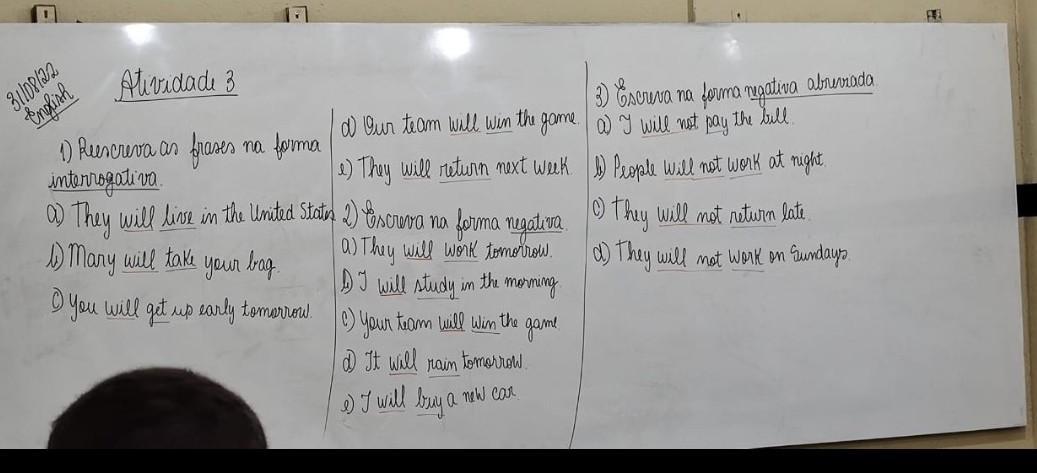 31/08/22
English
Atividade 3
1) Reescreva as frases na forma
interrogativa.
a) They will live in the United States
b) Mary will take your bag.
c) You will get up early tomorrow.
d) Our team will win the game.
e) They will return next week.
2) Escreva na forma negativa.
a) They will work tomorrow.
b) I will study in the morning.
c) Your team will win the game
d) It will rain tomorrow.
e) I will buy a new car.
3) Escreva na forma negativa abreviada
a) I will not pay the bill.
b) People will not work at night.
c) They will not return late.
d) They will not work on Sundays.